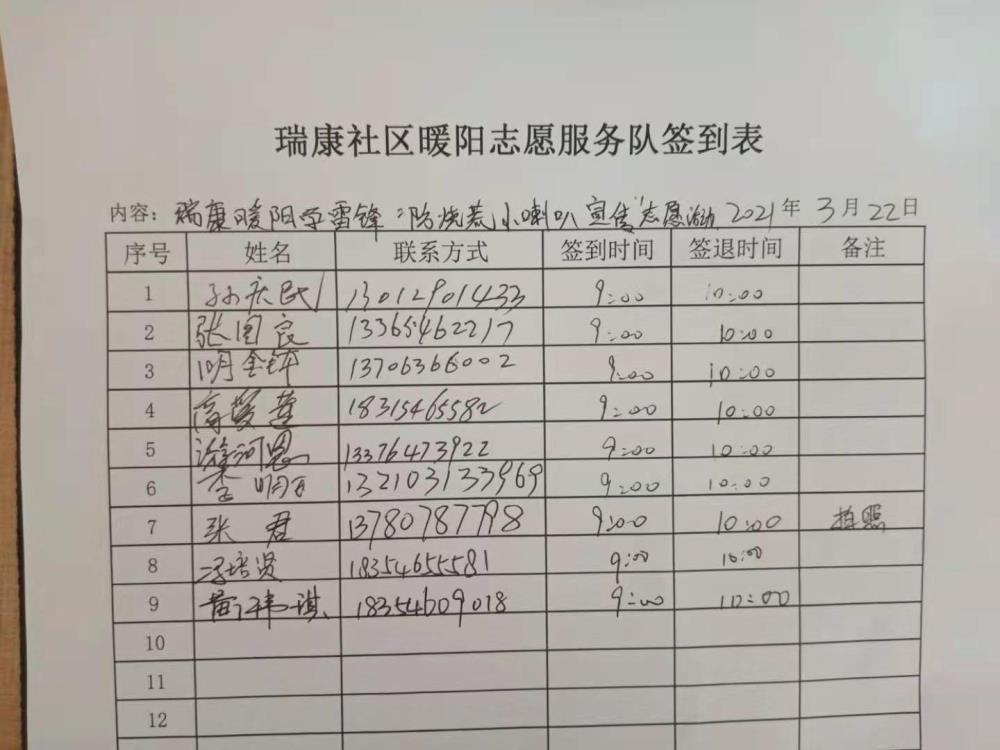 瑞康社区暖阳志愿服务队签到表
内容: 瑞康暖阳学雷锋“防烧荒小喇叭宣传”志愿 2021年3月22日
序号 姓名 联系方式 签到时间 签退时间 备注
1 孙庆民 13012901433 9:00 10:00
2 张国良 13365462217 9:00 10:00
3 明金钟 13706366002 9:00 10:00
4 高爱莲 18315465582 9:00 10:00
5 河恩 13376473922 9:00 10:00
6 李明 132103133969 9:00 10:00
7 张君 13780787798 9:00 10:00 拍照
8 冯培贤 18354655581 9:00 10:00
9 黄祎琪 18354609018 9:00 10:00
10
11
12